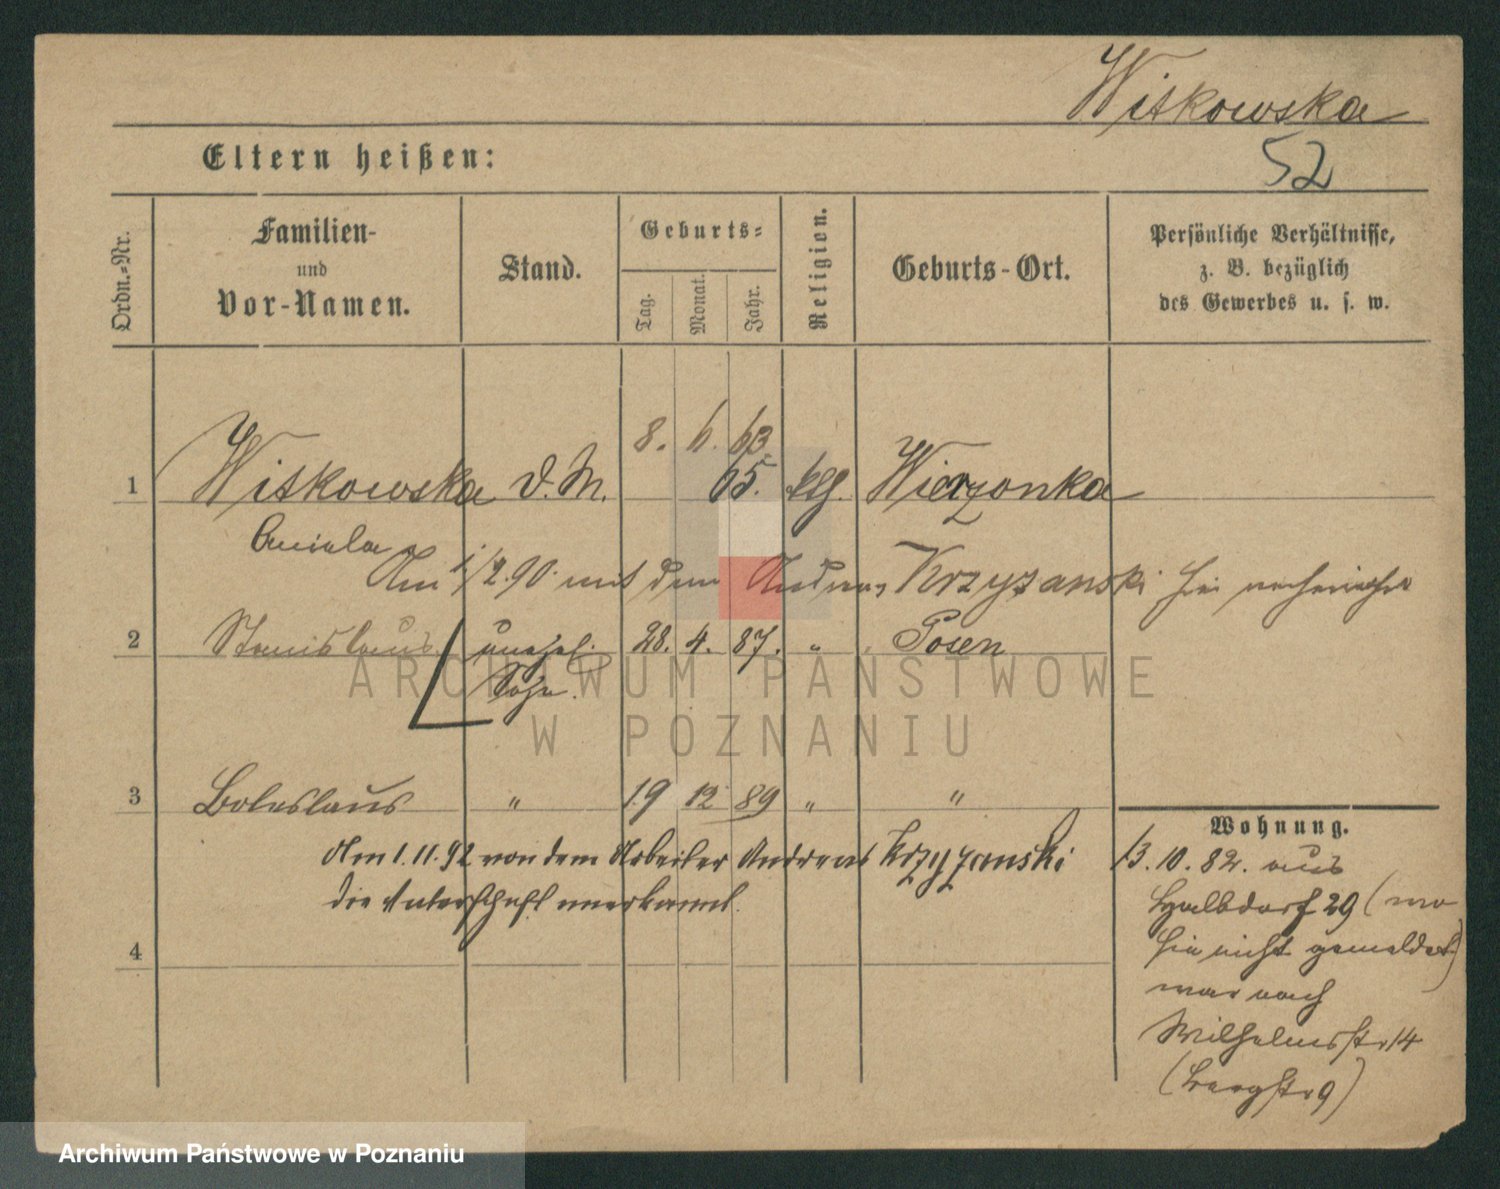 Witkowska
52
Eltern heißen:
Ordn.-Nr.
Familien-
und
Vor-Namen.
Stand.
Geburts-
Tag.
Monat.
Jahr.
Religion.
Geburts-Ort.
Persönliche Verhältnisse,
z. B. bezüglich
des Gewerbes u. s. w.
8. 6. 63.
1 Witkowska D. M. 65. ktlh. Wierzonka
Aniela
Am 1/2.90. mit dem Andreas Krzyzanski hier verheirathet
2 Stanislaus unehel. 28. 4. 87. " " Posen
Sohn.
3 Boleslaus " 19 12 89 " "
Am 1.11.92 von dem Arbeiter Andreas Krzyzanski
die Vaterschaft anerkannt.
4
Wohnung.
13.10.82. aus
Halbdorf 29 (wo
sie nicht gemeldet)
war nach
Wilhelmsstr 14
(Bergstr 9)
ARCHIWUM PAŃSTWOWE
W POZNANIU
Archiwum Państwowe w Poznaniu